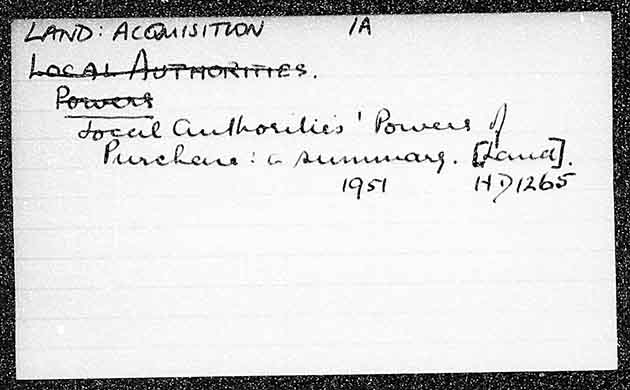 LAND: ACQUISITION 1A
LOCAL AUTHORITIES.
Powers
Local Authorities' Powers of
Purchase: a summary. [Land].
1951 HD1265